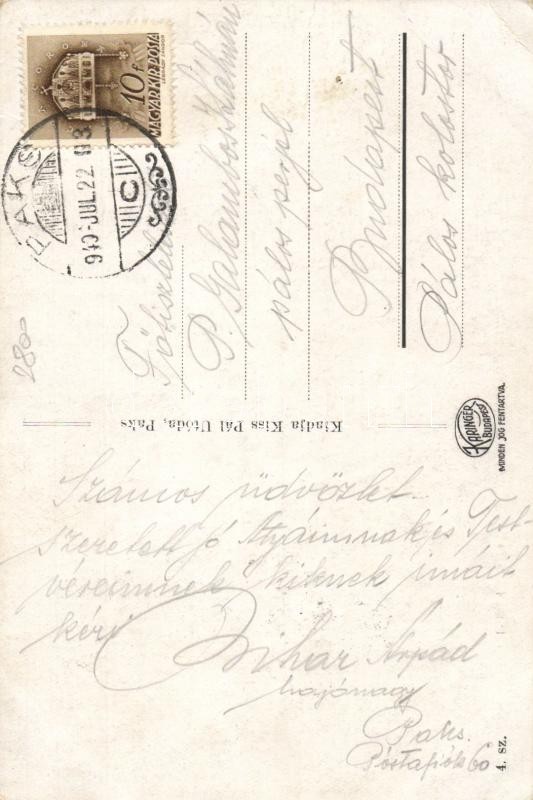 10f
MAGYAR KIR. POSTA
PAKS
940 JUL. 22
C
Főtisztelendő
P. Galambos Kálmán
pálos perjel
Budapest
Pálos kolostor
2800
Kiadja Kiss Pál Utóda, Paks
KARINGER
BUDAPEST
MINDEN JOG FENTARTVA.
Számos üdvözlet
szeretett jó Atyáimnak és Test-
véreimnek kiknek imáit
kéri
Bihar Árpád
hajónagy
Paks.
Postafiók 60
4. sz.